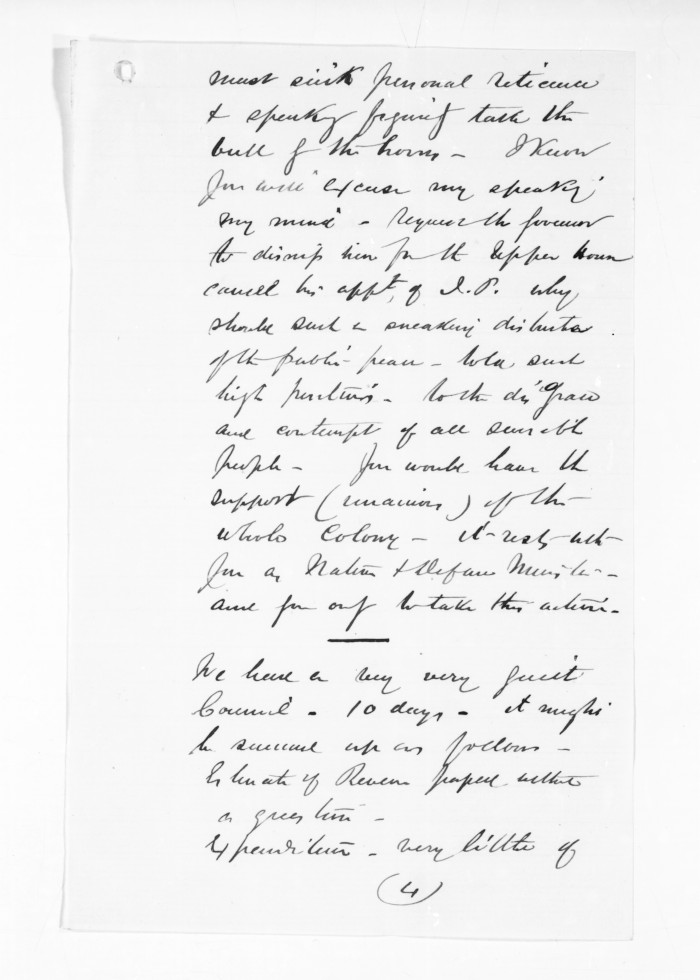 must sink personal reticence
& speaking figuratively take the
bull by the horns – I know
you will excuse my speaking
my mind – request the Governor
to dismiss him from the Upper House
cancel his appt, of J.P. why
should such a sneaking disturber
of the public peace – hold such
high positions – to the disgrace
and contempt of all sensible
people – You would have the
support (unanimous) of the
whole Colony – it rests with
you as Native & Defence Minister –
and you only to take this action –
We have a very very quiet
Council – 10 days – it might
be summed up as follows –
Estimate of Revenue passed without
a question –
Expenditure – very little of
(4)